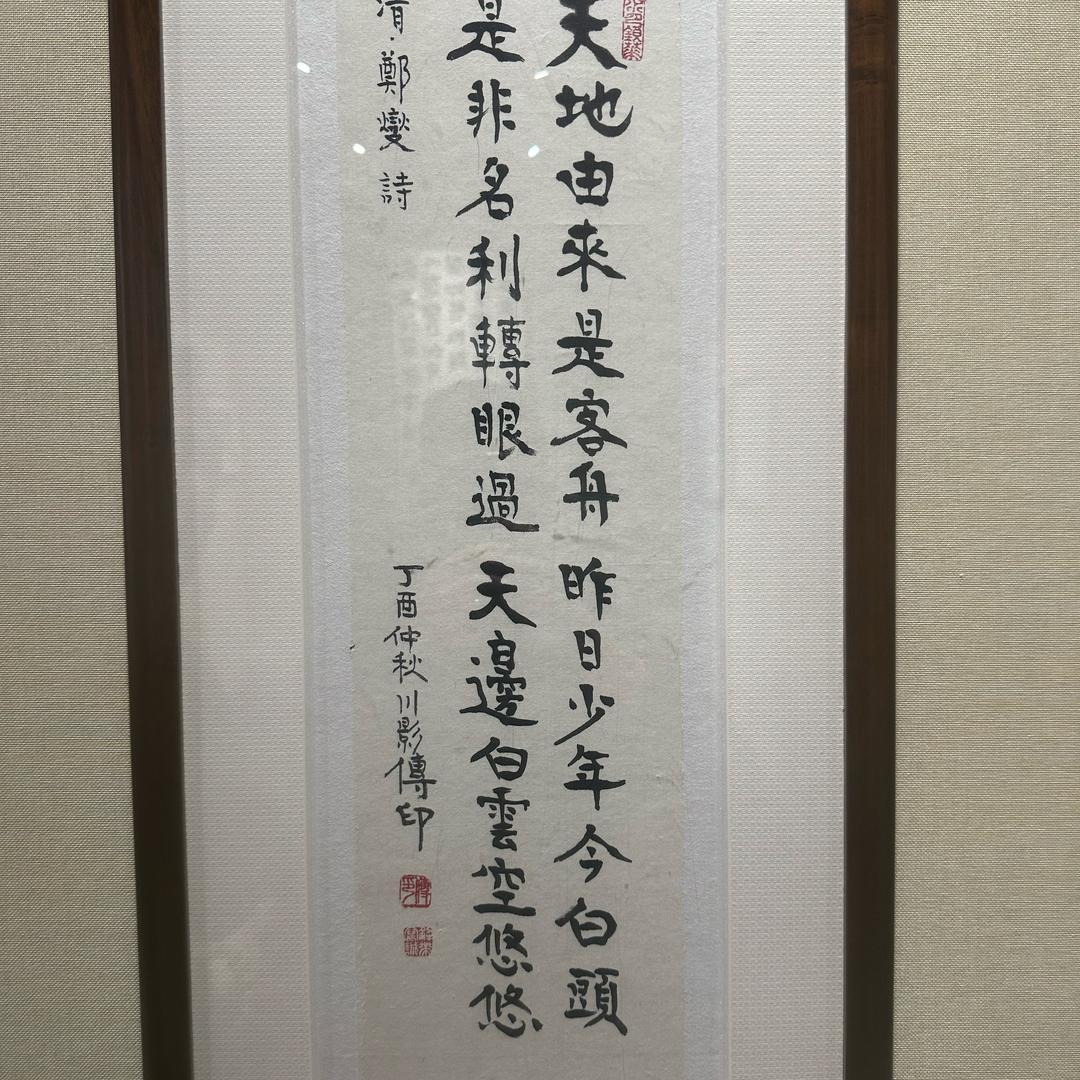 天地由來是客舟昨日少年今白頭
是非名利轉眼過天邊白雲空悠悠
清·鄭燮詩
丁酉仲秋川影傳印